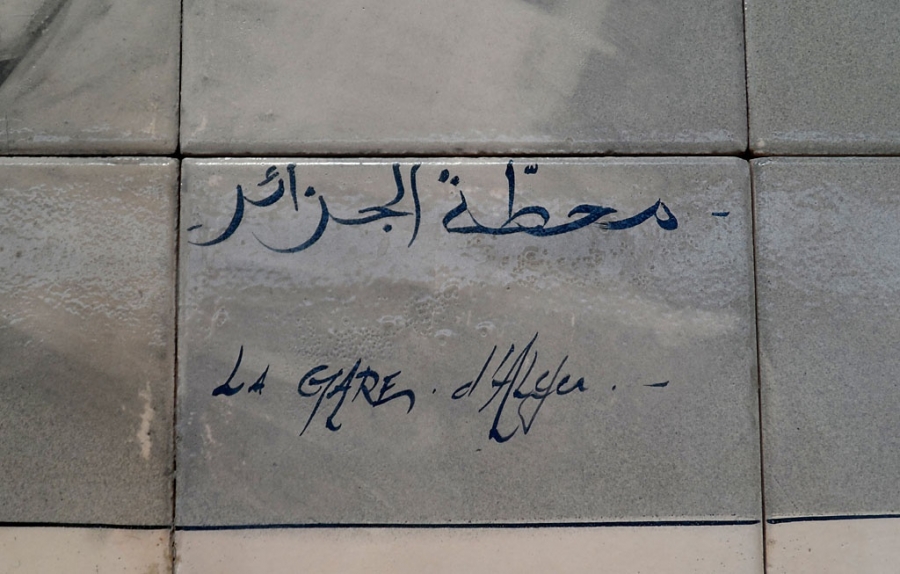 - محطّة الجزائر -
LA GARE. d'Alger. -